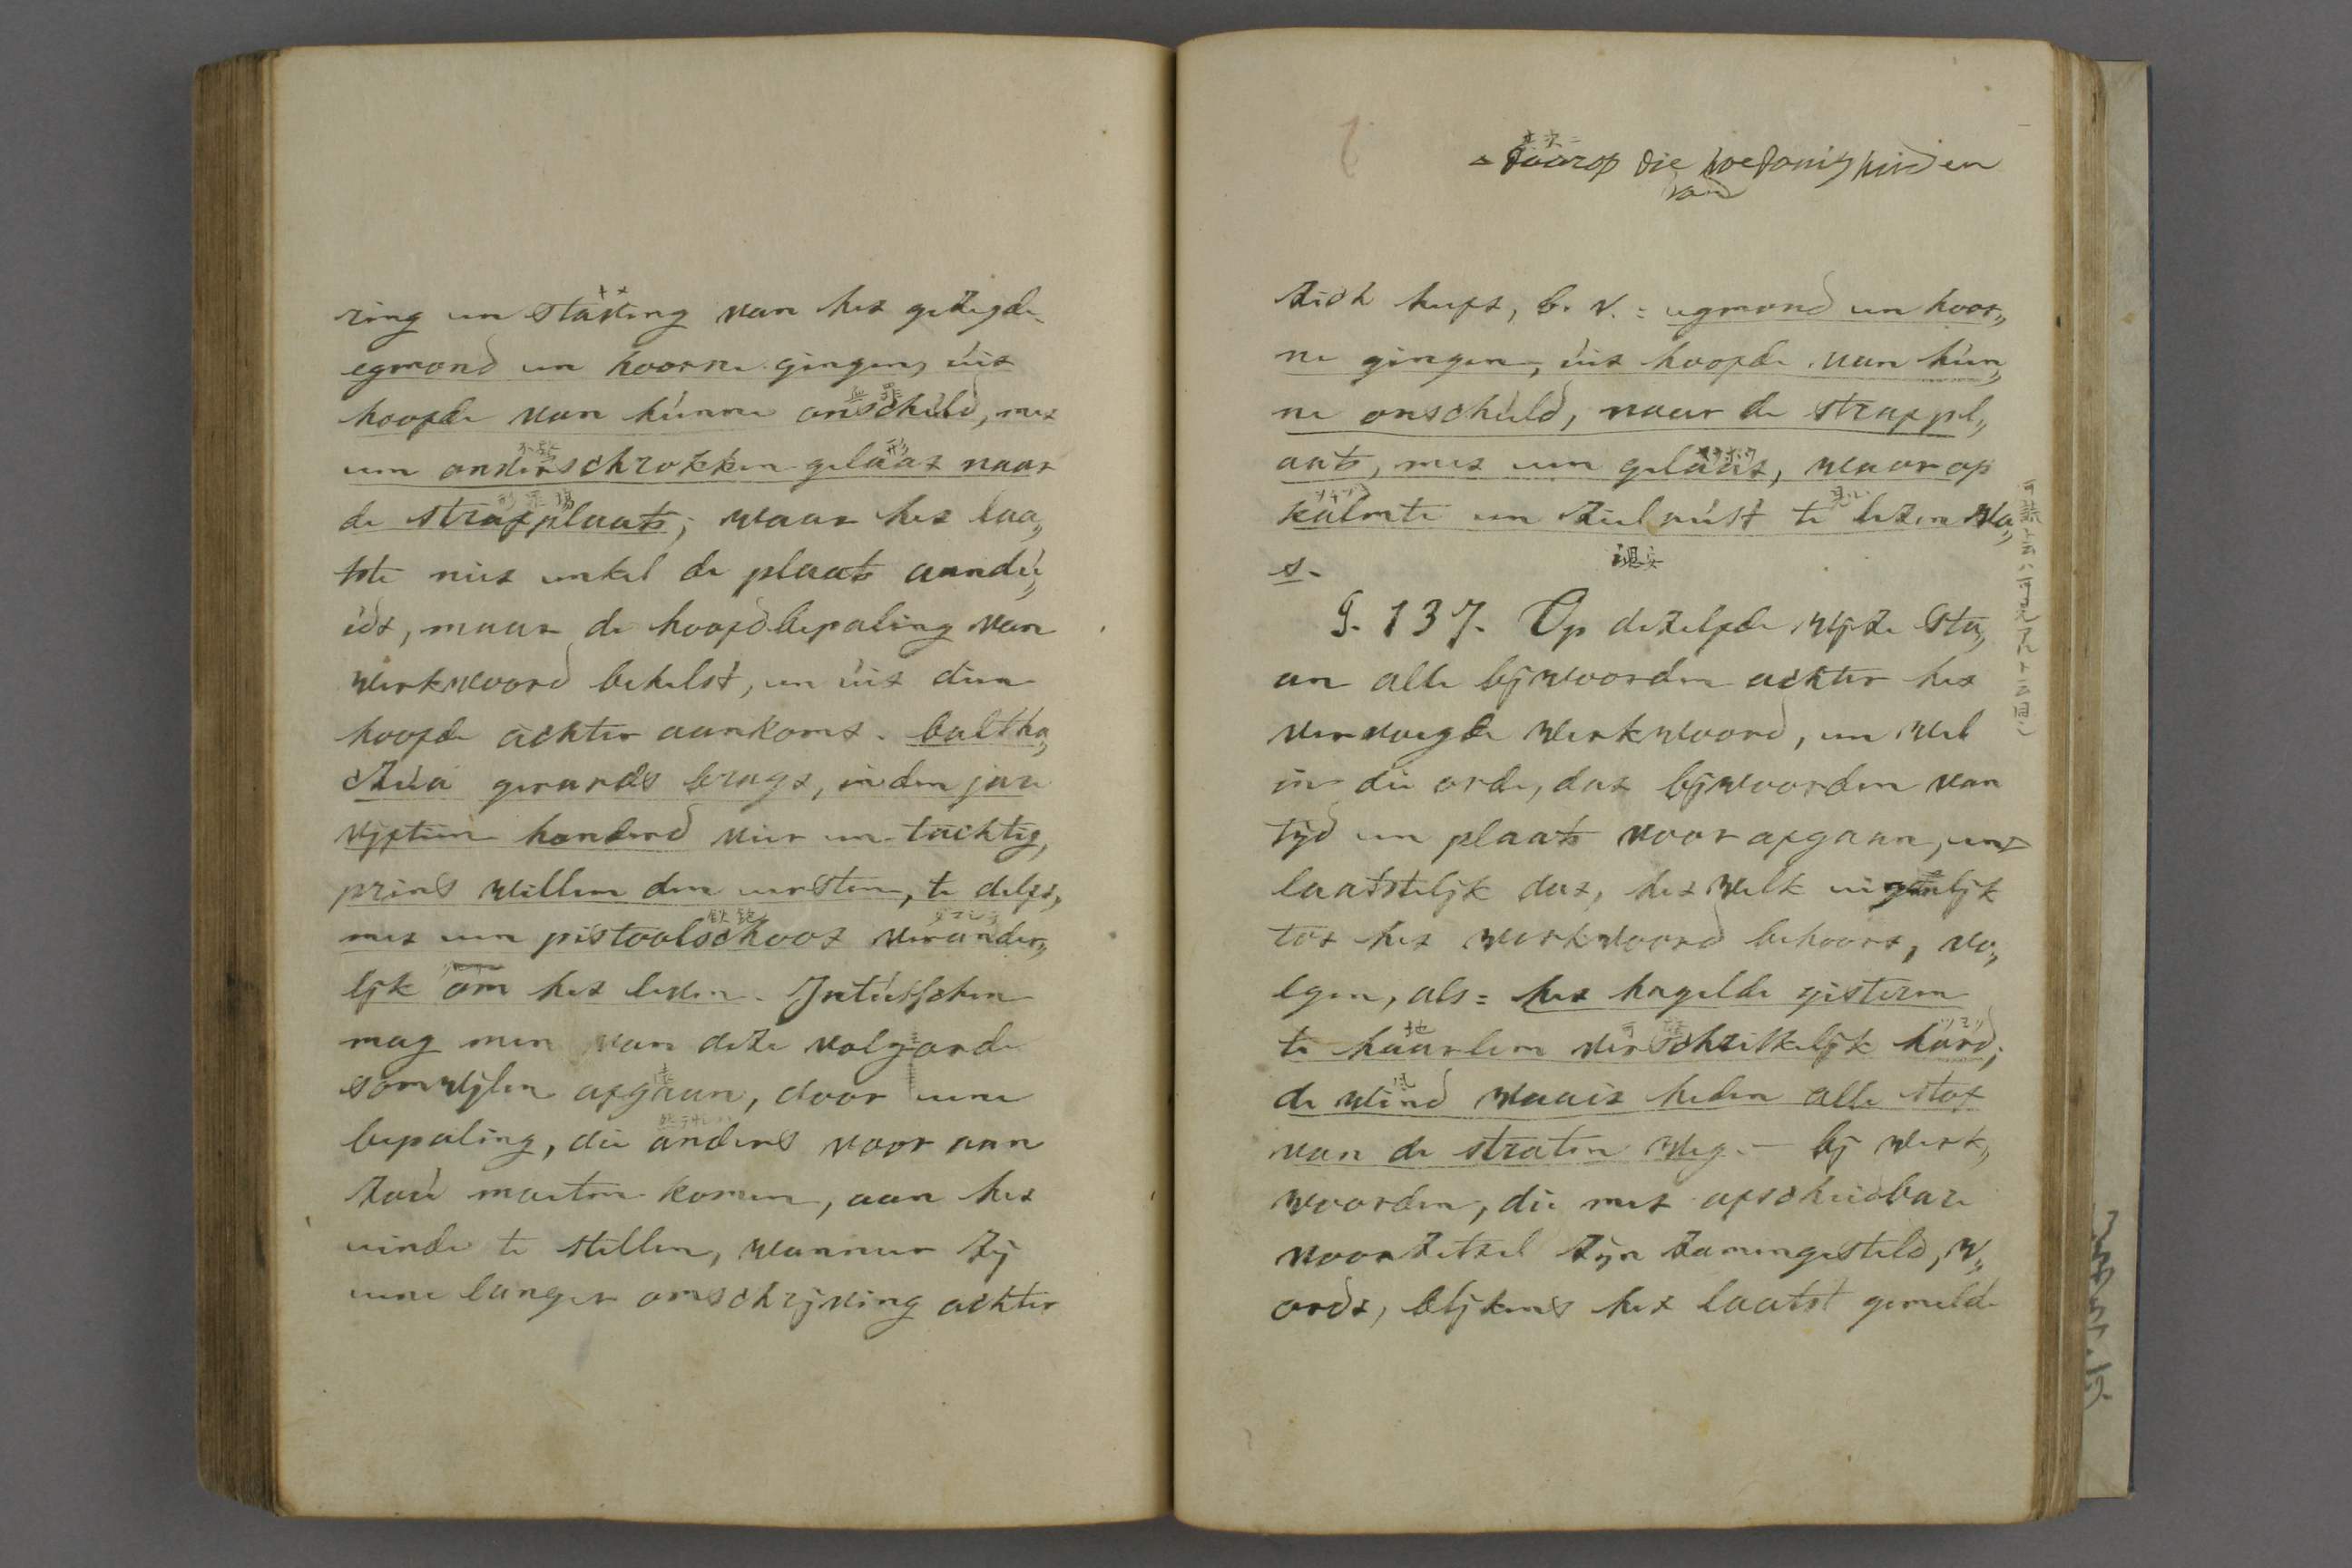 ring en staving van het gezegde
egmond en hoorne gingen, úit
hoofde van húnne onschúld, met
een onverschrokken gelaat naar
de strafplaats; waar het laa„
tste niet enkel de plaats aandú„
idt, maar de hoofdbepaling van
werkwoord behelst, en úit dien
hoofde achter aankomt. baltha„
gerards bragt, in den jare
vijftien honderd vier en tachtig,
prins willem den eersten, te delft,
met een pistoolschoot verander„
lijk om het leven. Intússchen
mag men van deze volgorde
somwijlen afgaan, door eene
bepaling, die anders voor aan
zoú moeten komen, aan het
einde te stellen, wanneer zij
eene langer omschrijving achter
daarop die hoedanigheiden
van
zich heeft, b. v. = egmond en hoor„
ne gingen, úit hoofde van hún„
ne onschúld, naar de strafpl„
aats, met een gelaat, waarop
kalmte en zielrúst te lezen wa„
s.
§. 137. Op dezelfde wijze sta„
an alle bijwoorden achter het
vervoegde werkwoord, en wel
in die orde, dat bijwoorden van
tijd en plaats voorafgaan, en
laatstelijk dat, hetwelk eigenlijk
tot het werkwoord behoort, vo„
lgen, als = het hagelde gisteren
te haarlem verschrikkelijk hard;
de wind waait heden alle stof
van de straten weg. – bij werk„
woorden, die met afscheidbare
voorzetzel zijn zamengesteld, w„
ordt, blijkens het laatst gemelde